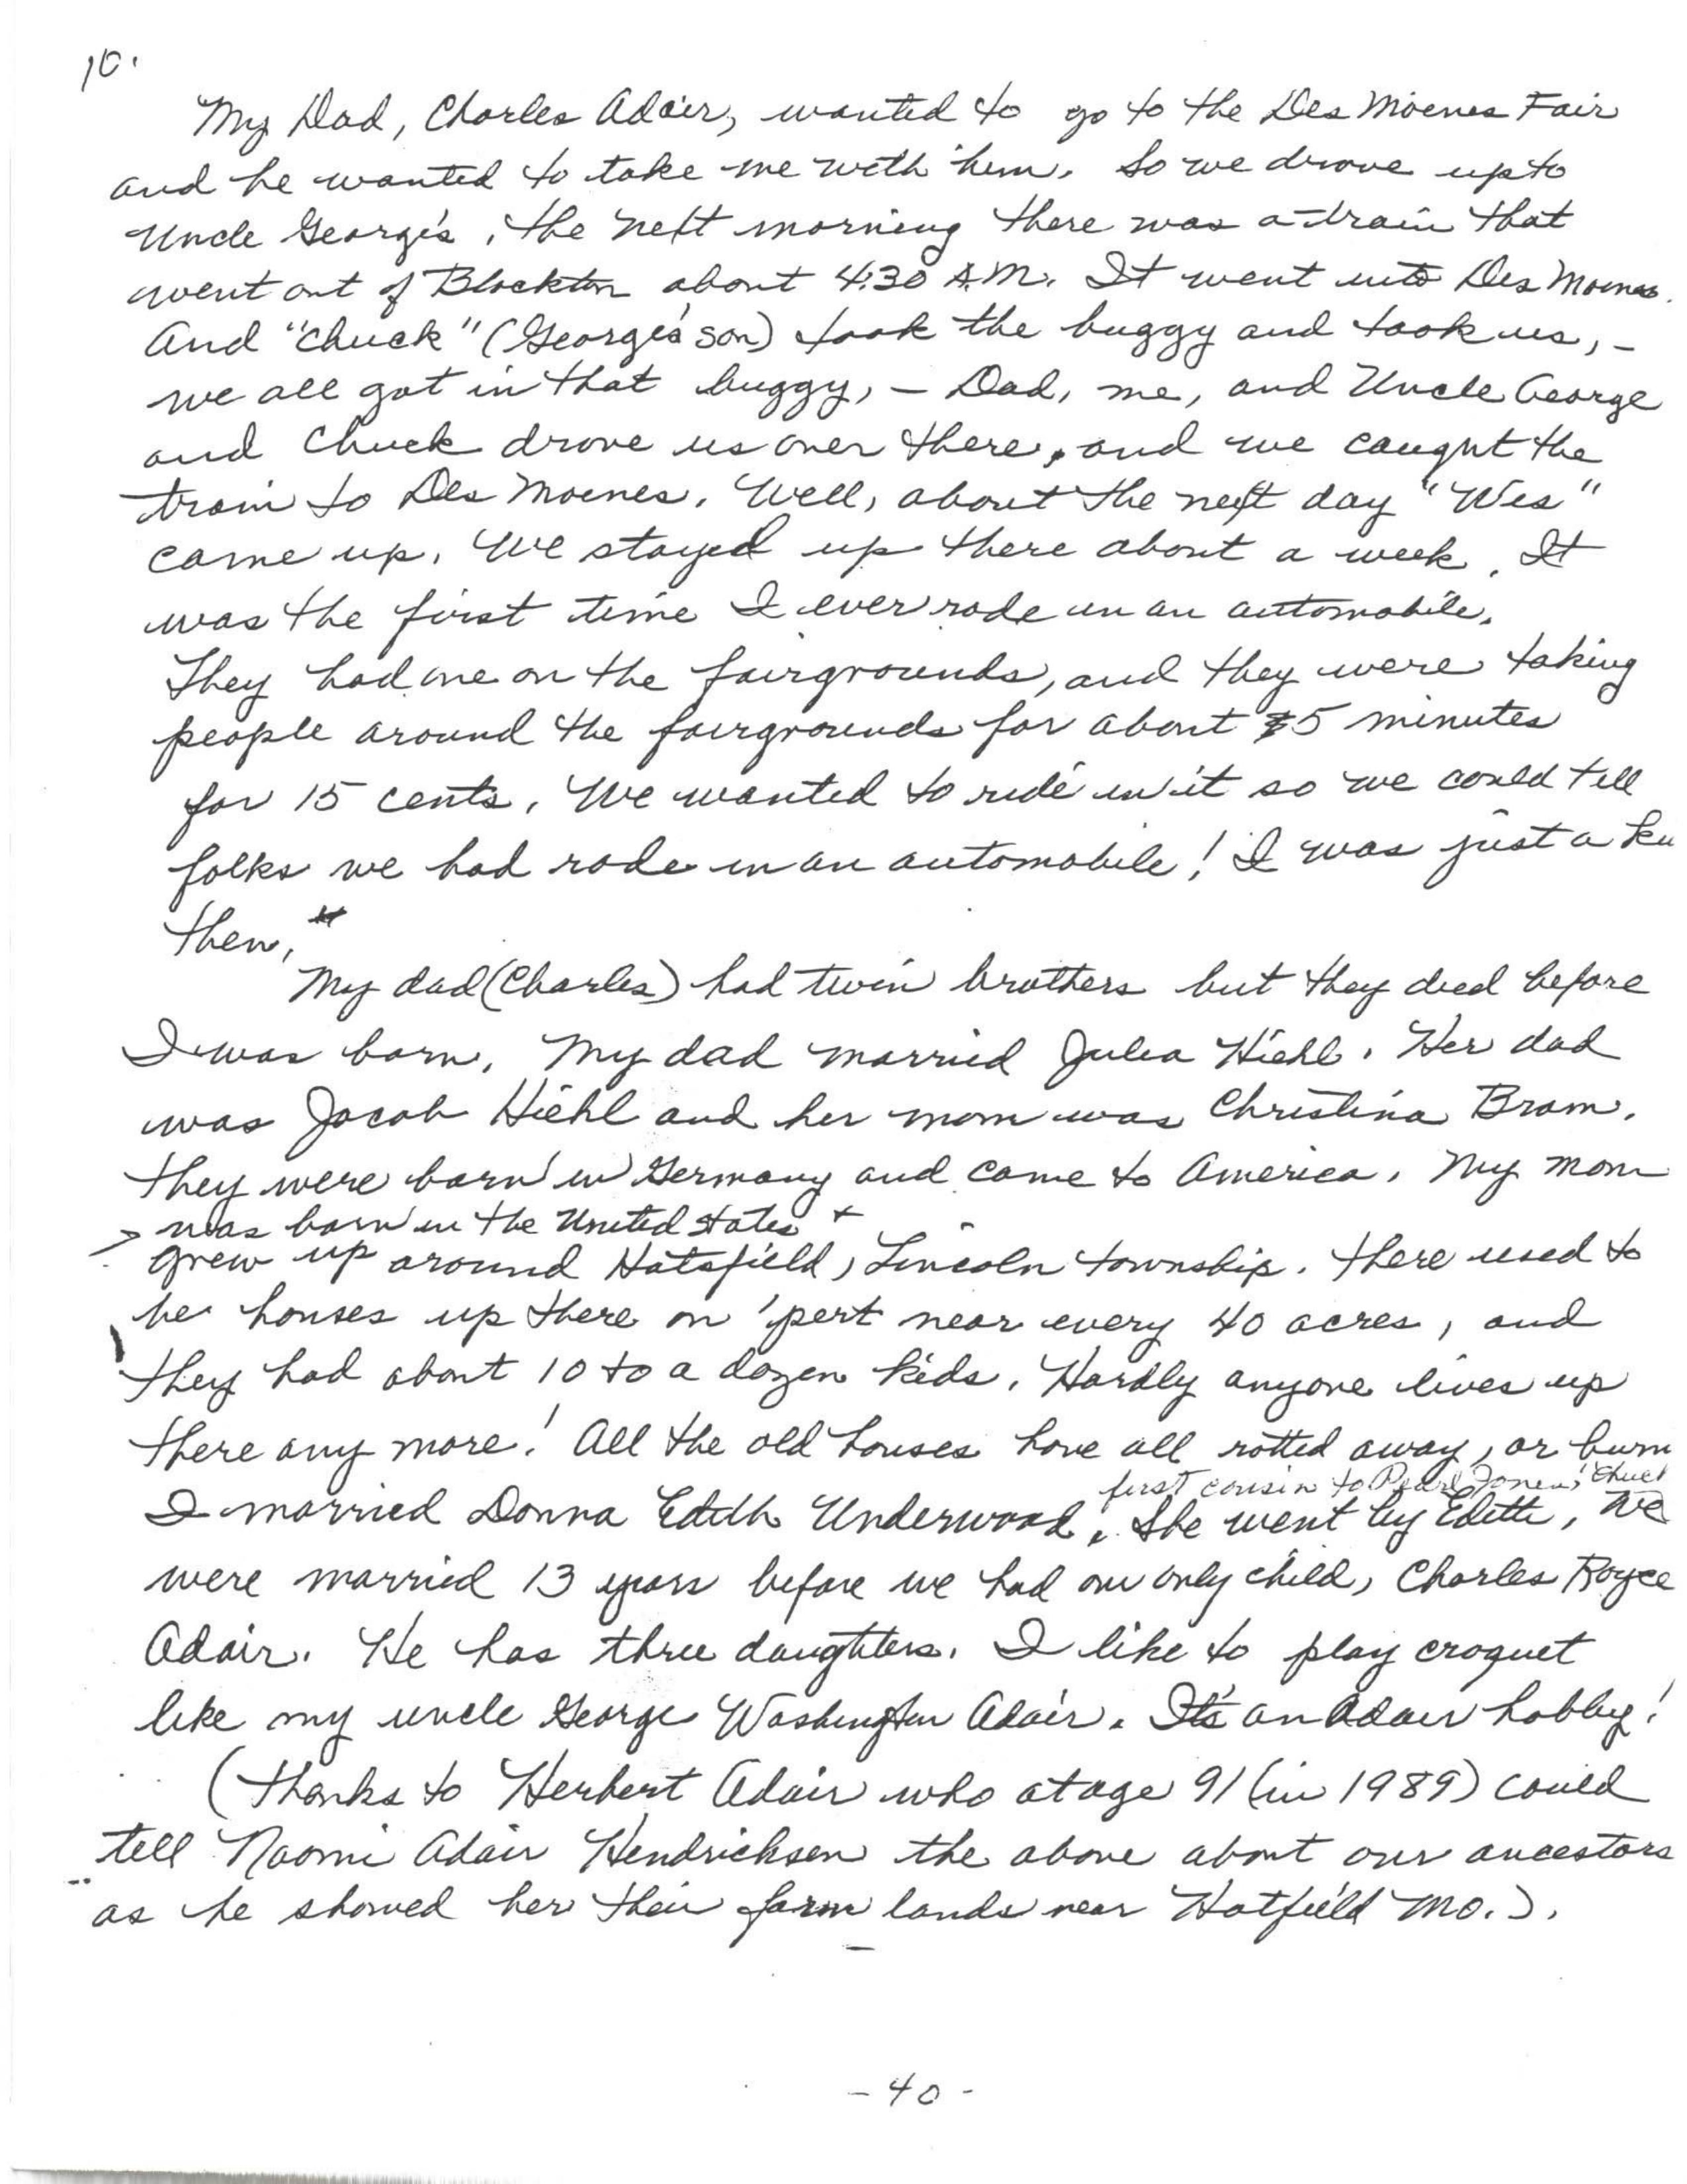 10.
My Dad, Charles Adair, wanted to go to the Des Moines Fair
and he wanted to take me with him. So we drove up to
Uncle George's, the next morning there was a train that
went out of Blockton about 4:30 A.M. It went into Des Moines.
And "Chuck" (George's son) took the buggy and took us, -
we all got in that buggy, - Dad, me, and Uncle George
and Chuck drove us over there, and we caught the
train to Des Moines. Well, about the next day "Wes"
came up. We stayed up there about a week. It
was the first time I ever rode in an automobile.
They had one on the fairgrounds, and they were taking
people around the fairgrounds for about 5 minutes
for 15 cents. We wanted to ride in it so we could tell
folks we had rode in an automobile! I was just a
then."
My dad (Charles) had twin brothers but they died before
I was born. My dad married Julia Hiehl. Her dad
was Jacob Hiehl and her mom was Christina Bram.
They were born in Germany and came to America. My mom
was born in the United States +
grew up around Hatsfield, Lincoln township. There used to
be houses up there on 'pert near every 40 acres, and
they had about 10 to a dozen kids. Hardly anyone lives up
there any more! All the old houses have all rotted away, or burn
first cousin to Pearl Jones, "Chuck
I married Donna Edith Underwood. She went by Edith, We
were married 13 years before we had our only child, Charles Royce
Adair. He has three daughters. I like to play croquet
like my uncle George Washington Adair. It's an Adair hobby!
(Thanks to Herbert Adair who at age 91 (in 1989) could
tell Naomi Adair Hendricksen the above about our ancestors
as he showed her their farm lands near Hatfield Mo.).
- 40 -